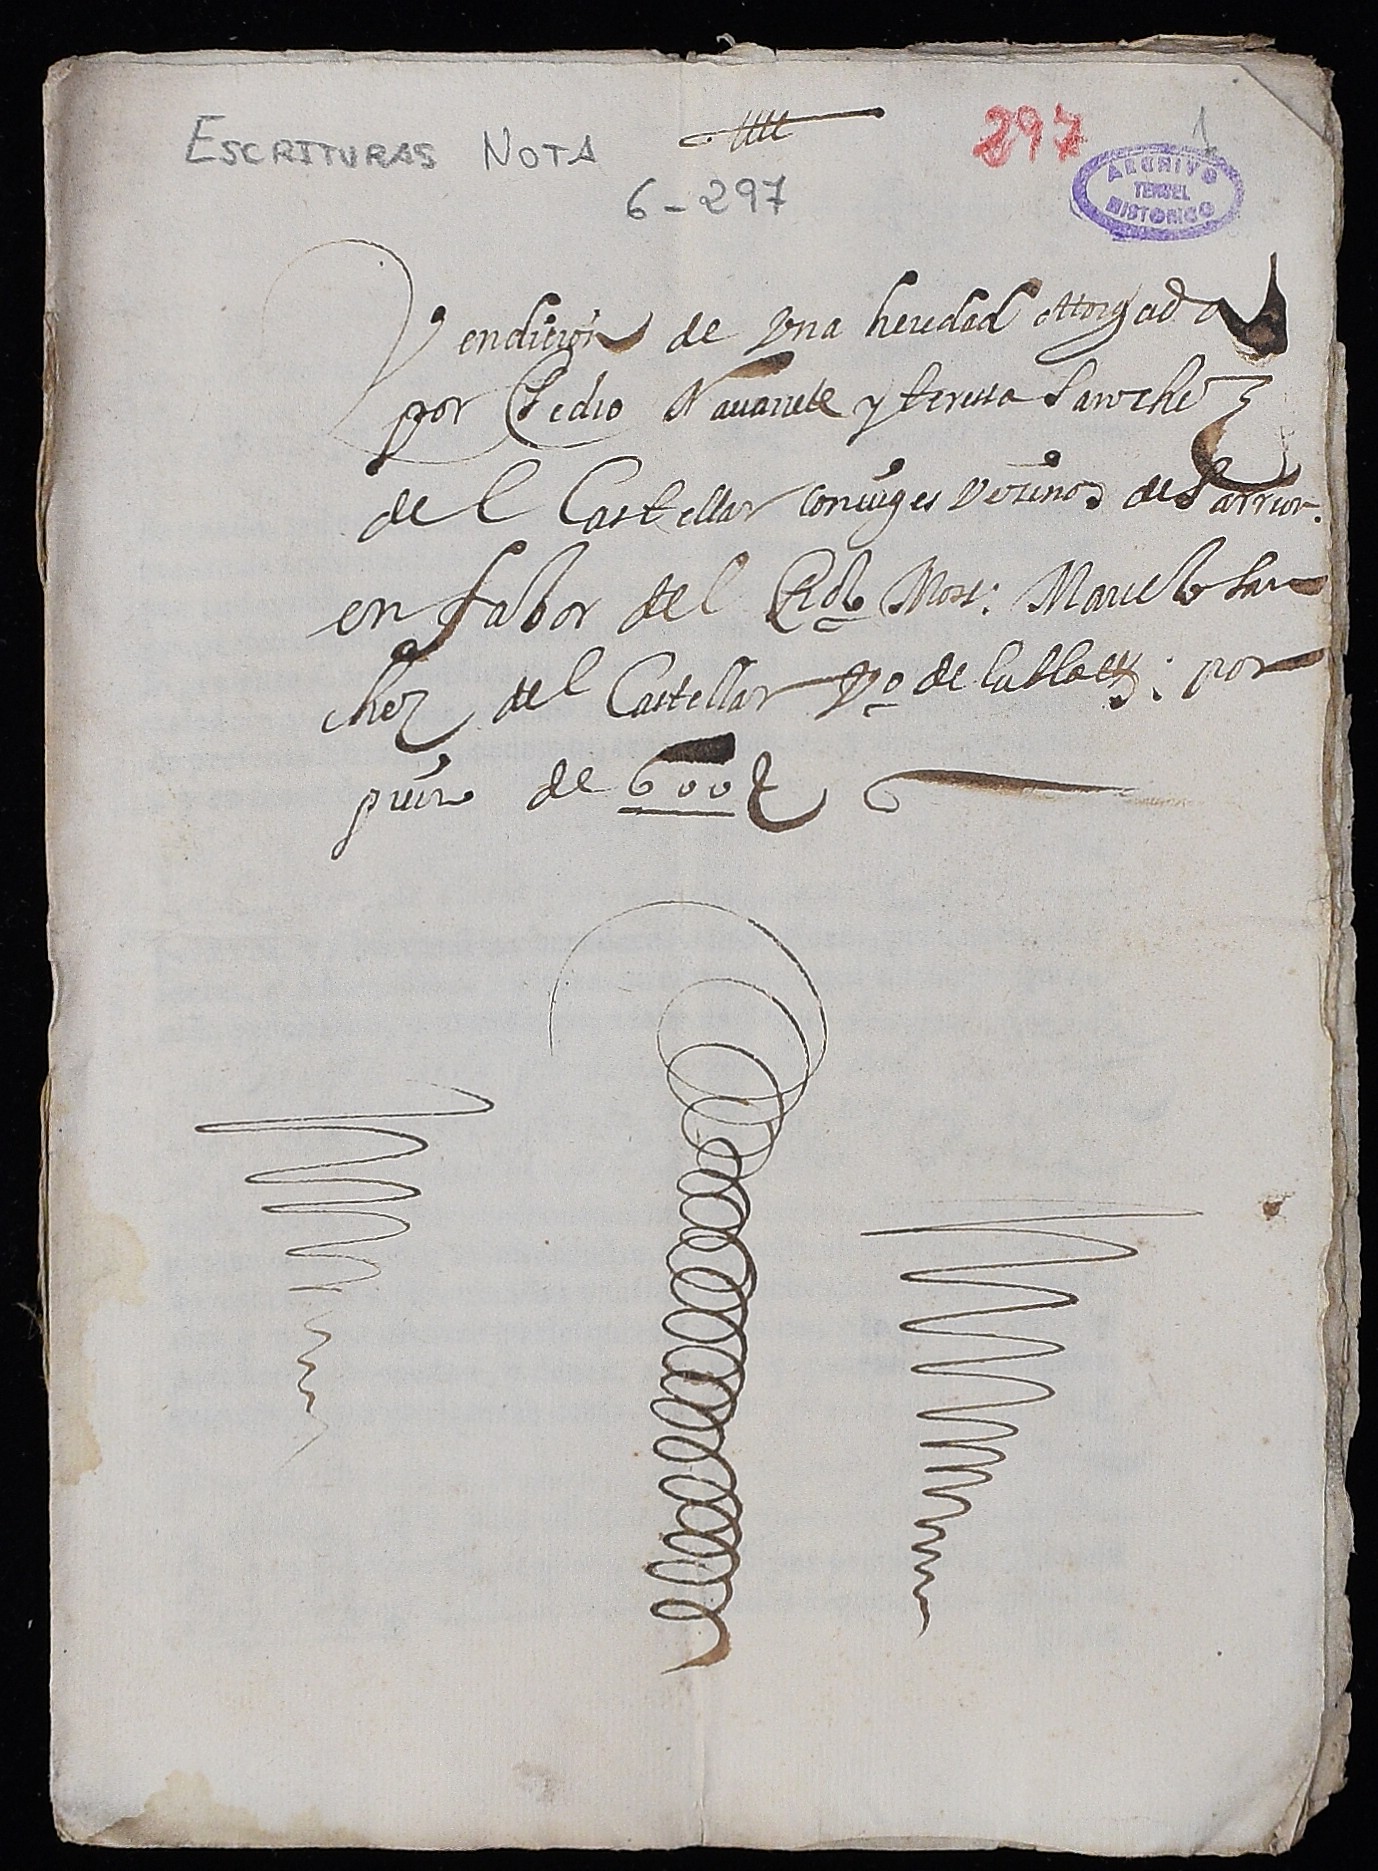 ESCRITURAS NOTA
297
1
6-297
ARCHIVO
TERUEL
HISTORICO
Vendicion de Una heredad ottorgada
por Pedro Navarrete y teressa Sanchez
del Castellar conuiges Vecinos de Sarrion.
en fabor del Rdo Moss: Marcelo San
chez del Castellar Vo de : por
precio de 600